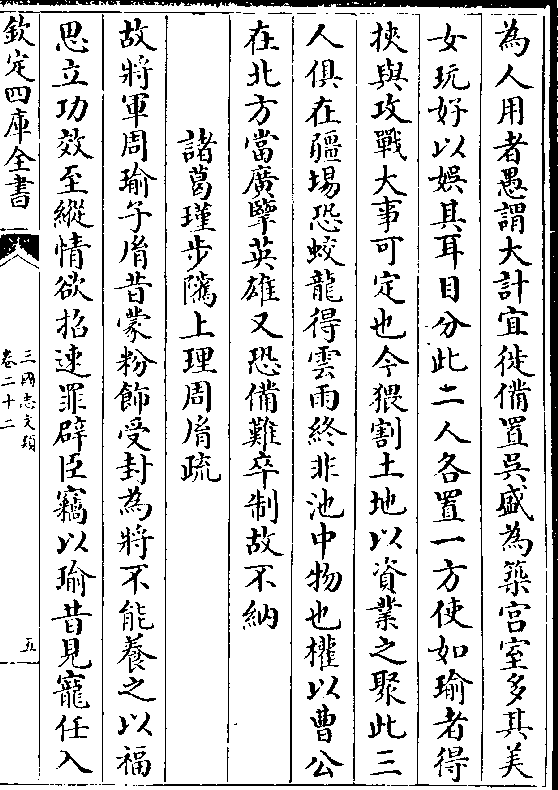 為人用者愚謂大計宜徙備置吳盛為築宫室多其美
女玩好以娛其耳目分此二人各置一方使如瑜者得
挾與攻戰大事可定也今猥割土地以資業之聚此三
人俱在疆場恐蛟龍得雲雨終非池中物也權以曹公
在北方當廣擥英雄又恐備難卒制故不納
諸葛瑾步隲上理周㣧疏
故將軍周瑜子㣧昔蒙粉飾受封為將不能養之以福
思立功效至縱情欲招速罪辟臣竊以瑜昔見寵任入
欽定四庫全書
三國志文類
卷二十二
五